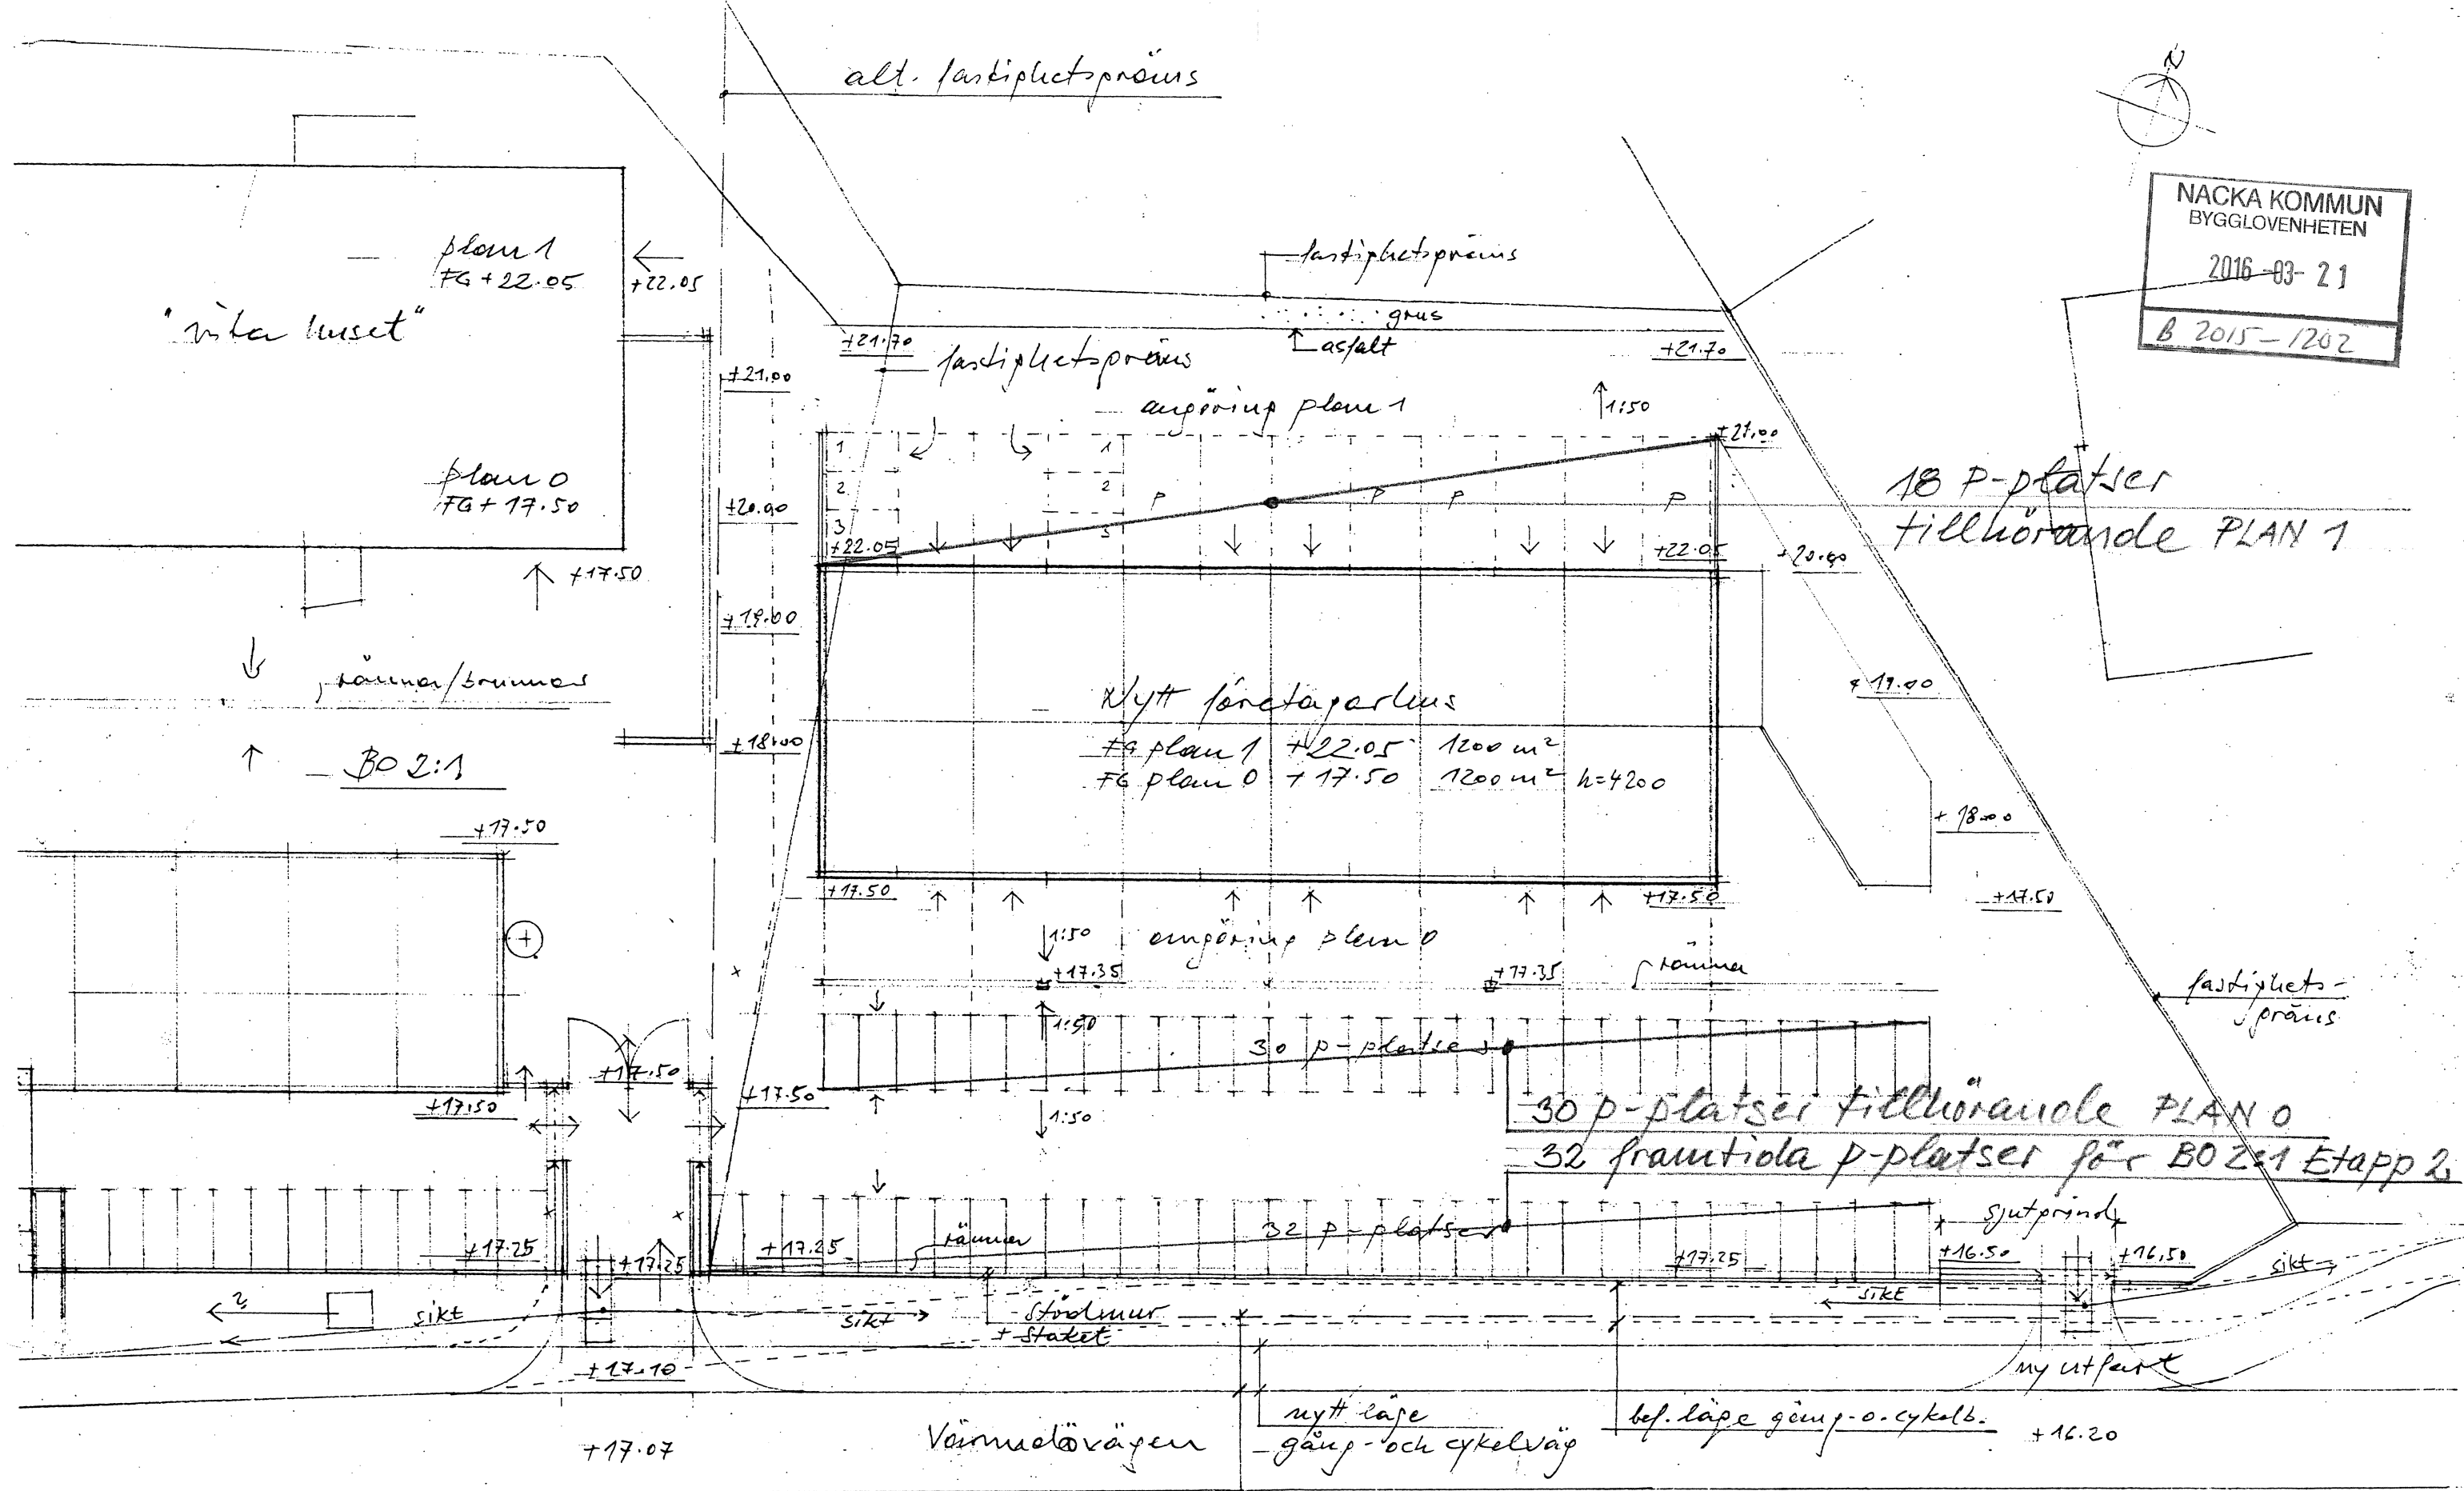 alt. fastighetsgräns
N
NACKA KOMMUN
BYGGLOVENHETEN
2016-03-21
B 2015-1202
plan 1
FG +22.05
+22.05
"vita huset"
plan 0
FG +17.50
+17.50
fastighetsgräns
grus
asfalt
+21.70
fastighetsgräns
+21.70
+21.00
angöring plan 1
1:50
+21.00
1
2
3
1
2
3
P
P
P
P
+20.00
+22.05
+22.05
+20.00
18 P-platser
tillhörande PLAN 1
+19.00
rännor/brunnar
+18.00
BO 2:1
Nytt företagarhus
FG plan 1 +22.05 1200 m²
FG plan 0 +17.50 1200 m² h=4200
+19.00
+18.00
+17.50
+17.50
+17.50
+17.50
1:50
angöring plan 0
+17.35
+17.35
ränna
fastighets-
gräns
1:50
30 p-platser
+17.50
+17.50
+17.50
1:50
30 p-platser tillhörande PLAN 0
32 framtida p-platser för BO 2:1 Etapp 2
skjutgrind
32 p-platser
ränna
+17.25
+17.25
+17.25
+17.25
+16.50
+16.50
sikt
2
sikt
sikt
sikt
stödmur
+ staket
+17.10
ny utfart
nytt läge
gång- och cykelväg
bef. läge gång-o.cykelb.
+16.20
Värmdövägen
+17.07